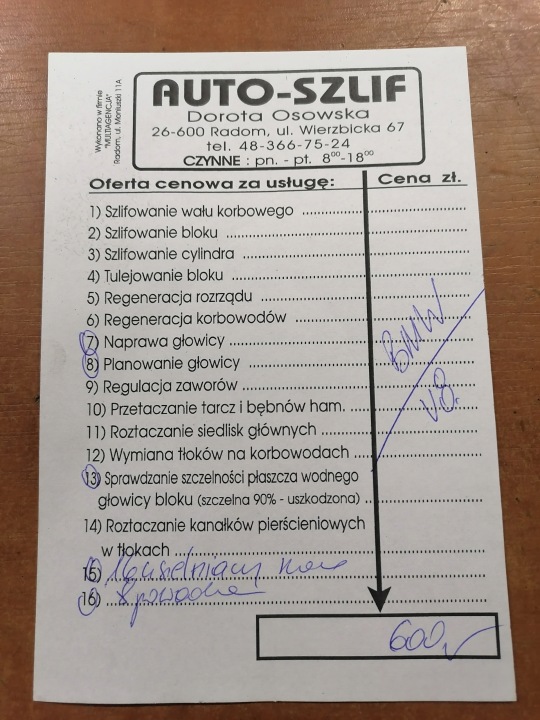 Wykonano w firmie
"MULTIAGENCJA"
Radom, ul. Moniuszki 11A
AUTO-SZLIF
Dorota Osowska
26-600 Radom, ul. Wierzbicka 67
tel. 48-366-75-24
CZYNNE : pn. - pt. 8⁰⁰-18⁰⁰
Oferta cenowa za usługę: Cena zł.
1) Szlifowanie wału korbowego
2) Szlifowanie bloku
3) Szlifowanie cylindra
4) Tulejowanie bloku
5) Regeneracja rozrządu
6) Regeneracja korbowodów
7) Naprawa głowicy
8) Planowanie głowicy
9) Regulacja zaworów
10) Przetaczanie tarcz i bębnów ham.
11) Roztaczanie siedlisk głównych
12) Wymiana tłoków na korbowodach
13) Sprawdzanie szczelności płaszcza wodnego
głowicy bloku (szczelna 90% - uszkodzona)
14) Roztaczanie kanałków pierścieniowych
w tłokach
15)
16)
BMW
V8.
600,-